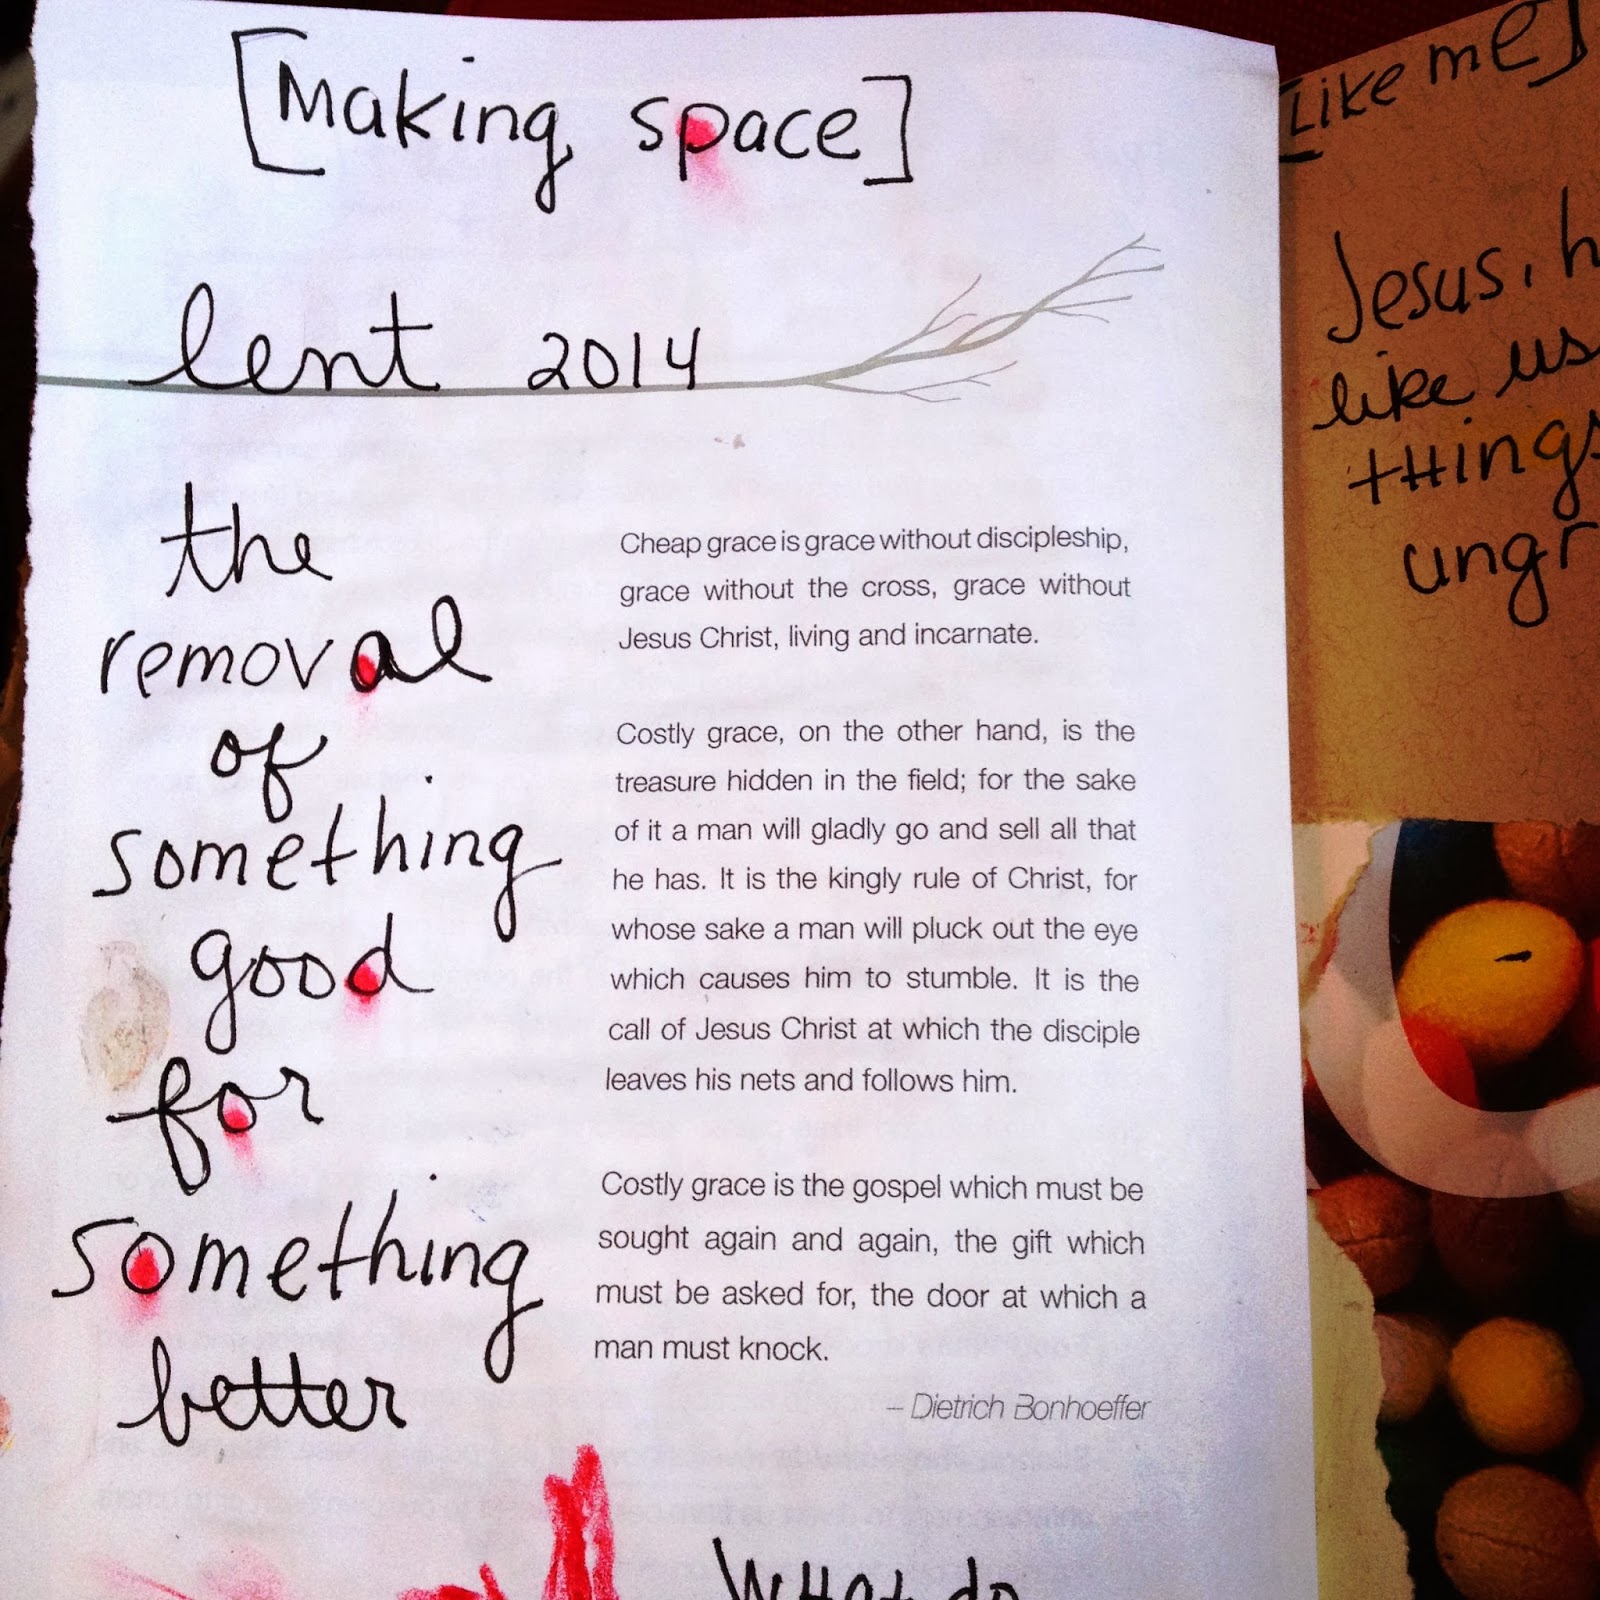 [Making space]
lent 2014
the
removal
of
something
good
for
something
better
Cheap grace is grace without discipleship,
grace without the cross, grace without
Jesus Christ, living and incarnate.
Costly grace, on the other hand, is the
treasure hidden in the field; for the sake
of it a man will gladly go and sell all that
he has. It is the kingly rule of Christ, for
whose sake a man will pluck out the eye
which causes him to stumble. It is the
call of Jesus Christ at which the disciple
leaves his nets and follows him.
Costly grace is the gospel which must be
sought again and again, the gift which
must be asked for, the door at which a
man must knock.
– Dietrich Bonhoeffer
What do
[Like me]
Jesus, h
like us
things
ungr